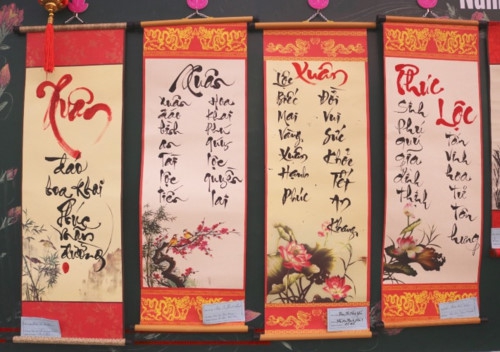 Năm
Xuân
đào
hoa khai
Phúc
mãn
đường
Xuân
Xuân
đáo
bình
an
Tài
lộc
tiến
Hoa
khai
phú
quý
lộc
quyền
lai
Xuân
Lộc
Biếc
Mai
Vàng
Xuân
Hạnh
Phúc
Đời
Vui
Sức
Khỏe
Tết
An
Khang
Phúc
Sinh
phú
quý
gia
đình
thịnh
Lộc
tấn
vinh
hoa
tử
tôn
hưng